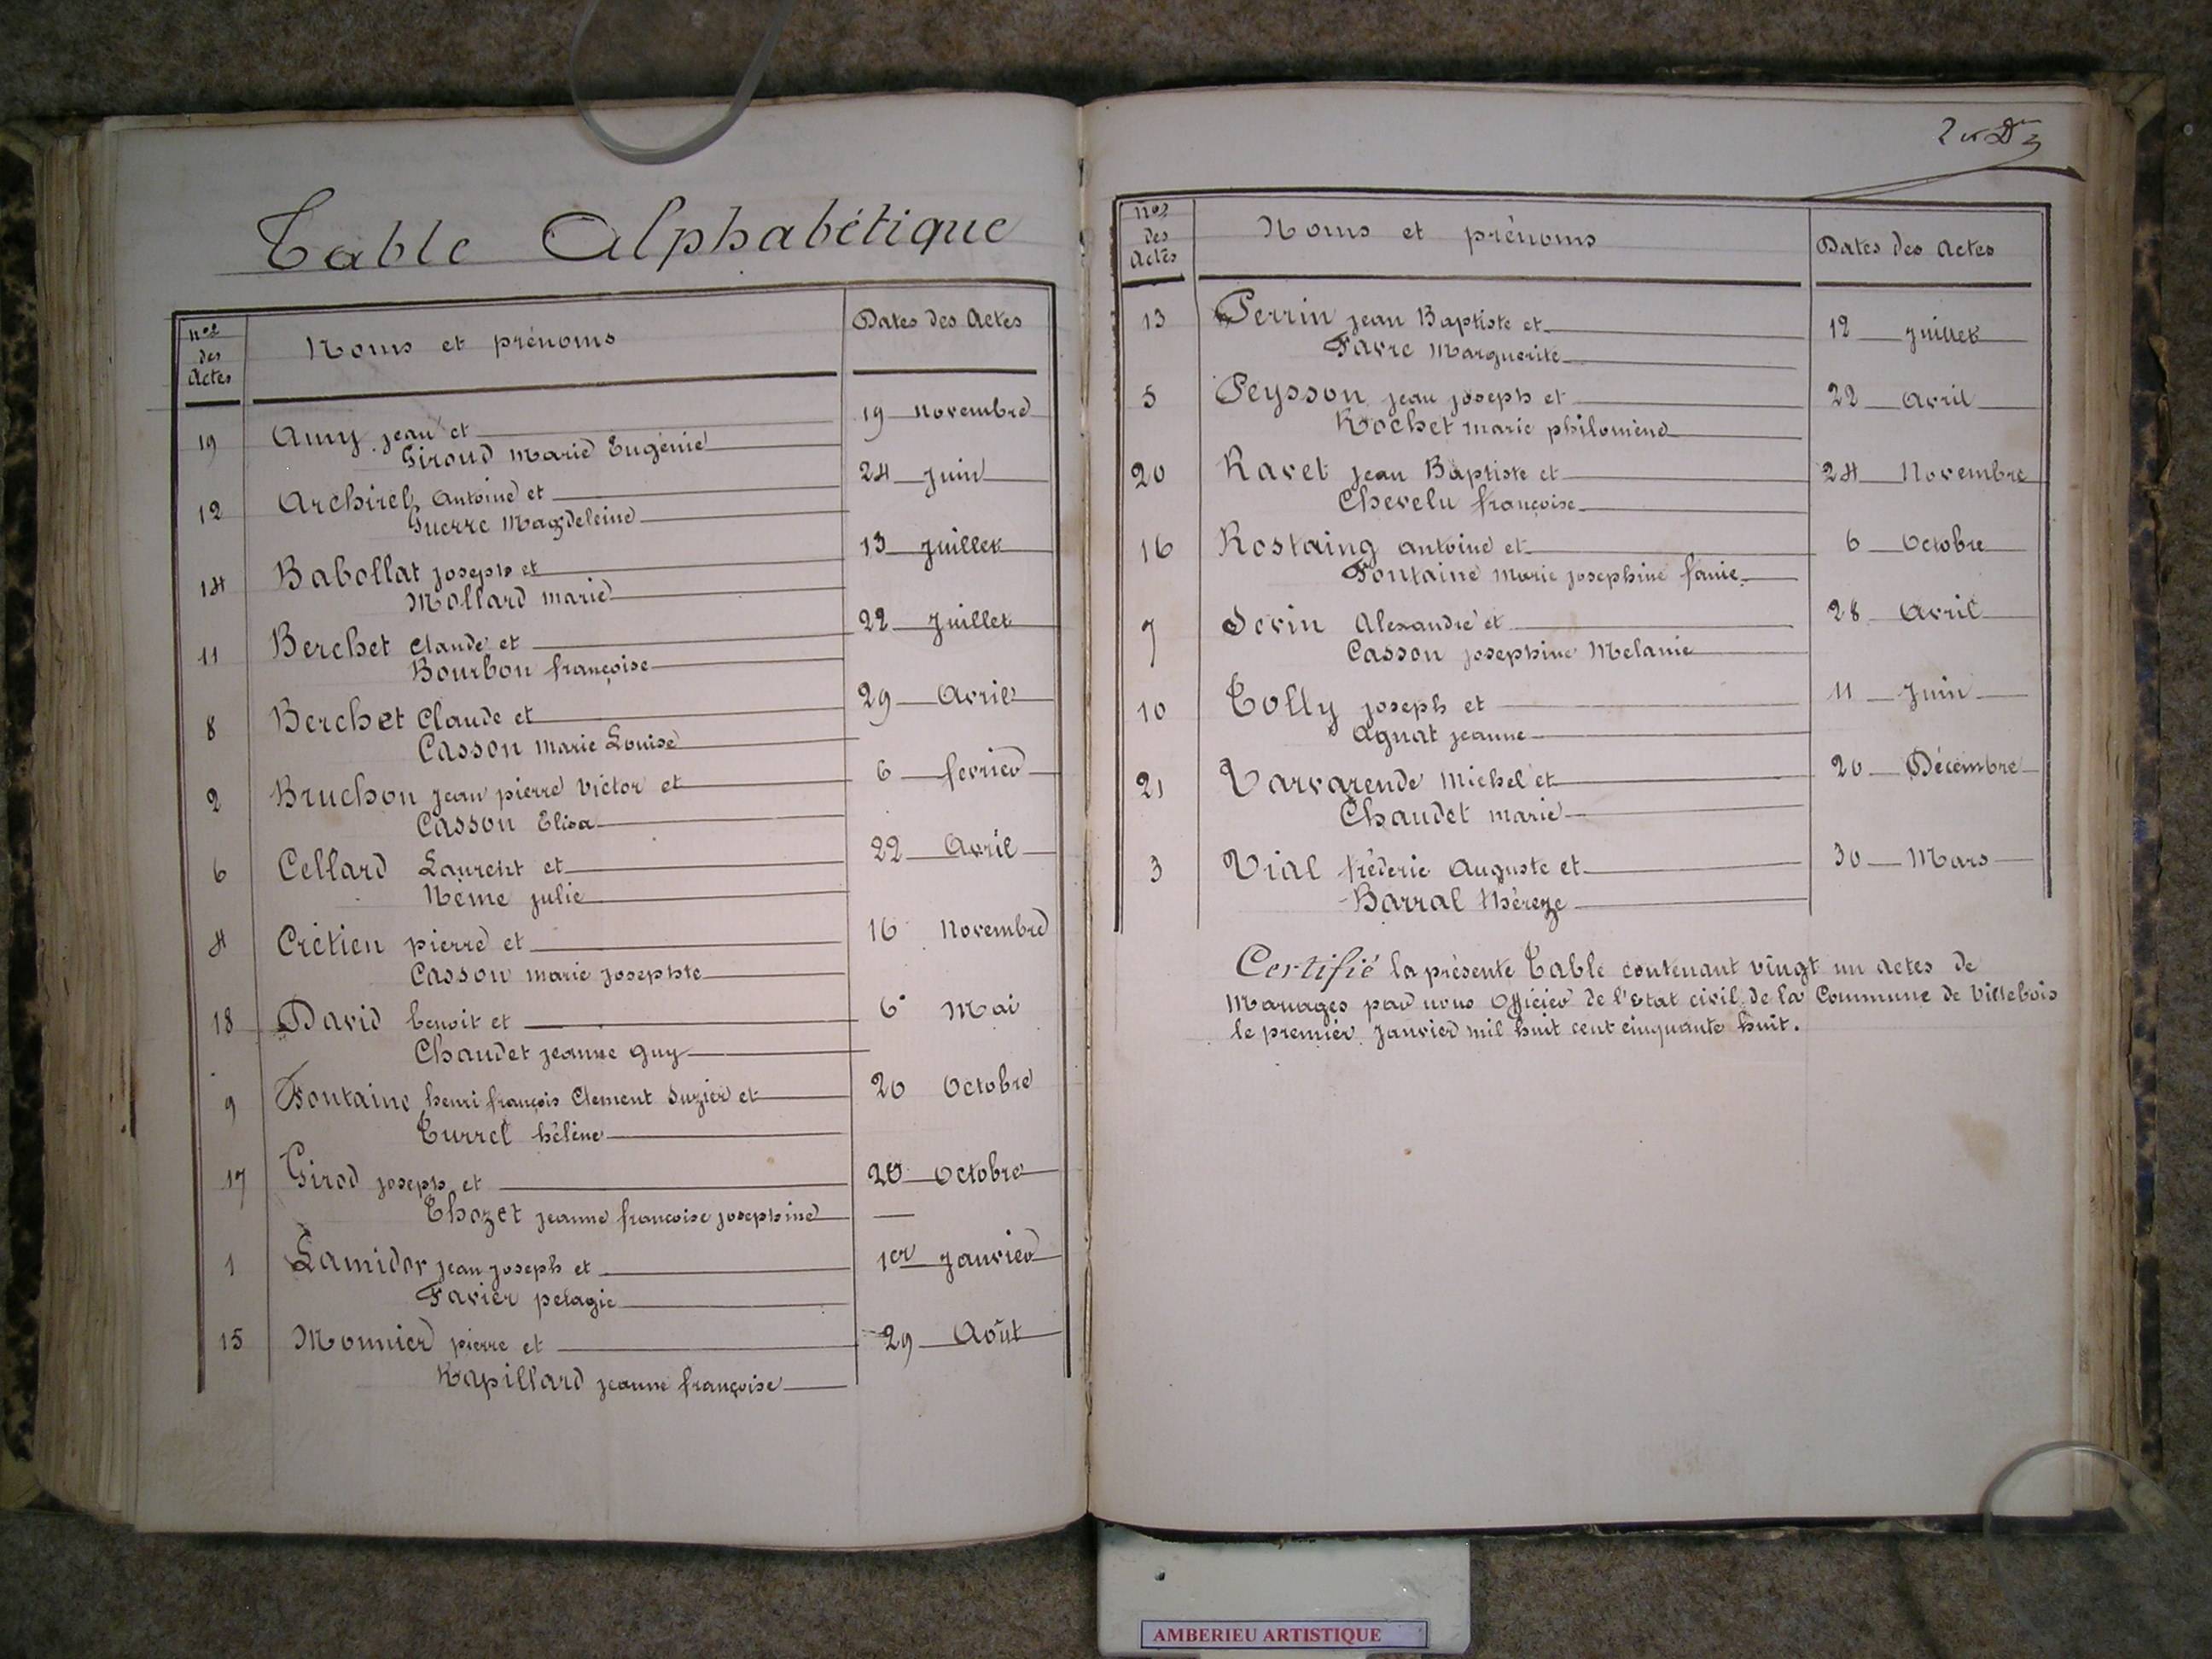 Table Alphabétique
Nos des Actes
Noms et prénoms
Dates des Actes
19 Amy jean et 19 Novembre
Giroud Marie Eugénie
12 Archirel Antoine et 24 Juin
Guerre Magdeleine
14 Babollat joseph et 13 Juillet
Mollard marie
11 Berchet Claude et 22 Juillet
Bourbon françoise
8 Berchet Claude et 29 Avril
Casson Marie Louise
2 Bruchon jean pierre Victor et 6 fevrier
Casson Elisa
6 Cellard Laurent et 22 Avril
Neme julie
4 Crétien pierre et 16 Novembre
Casson marie josephte
18 David benoit et 6 Mai
Chaudet jeanne guy
9 Fontaine henri françois Clement Suzier et 20 Octobre
Turrel hélène
17 Girod joseph et 20 Octobre
Thozet jeanne francoise josephine
1 Lamidor jean joseph et 1er Janvier
Favier pelagie
15 Monnier pierre et 29 Août
Rapillard jeanne françoise
Nos des Actes
Noms et prénoms
Dates des Actes
13 Perrin jean Baptiste et 12 Juillet
Favre Marguerite
5 Peysson jean joseph et 22 Avril
Rochet marie philomène
20 Ravet jean Baptiste et 24 Novembre
Chevelu françoise
16 Rostaing antoine et 6 Octobre
Fontaine Marie josephine fanie
7 Sevin Alexandre et 28 Avril
Casson josephine Melanie
10 Tolly joseph et 11 Juin
Agnat jeanne
21 Varvarende Michel et 20 Décembre
Chaudet marie
3 Vial fréderic Auguste et 30 Mars
Barral thereze
Certifié la présente Table contenant vingt un actes de
Mariages par nous Officier de l'Etat civil de la Commune de Villebois
le premier Janvier mil huit cent cinquante huit.
AMBERIEU ARTISTIQUE